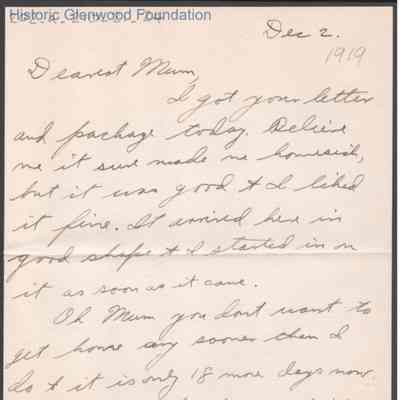 Historic Glenwood Foundation
Dec 2.
1919
Dearest Mum,
I got your letter
and package today. Believe
me it sure made me homesick,
but it was good & I liked
it fine. It arrived here in
good shape & I started in on
it as soon as it came.
Oh Mum you dont want to
get home any sooner than I
do & it is only 18 more days now.